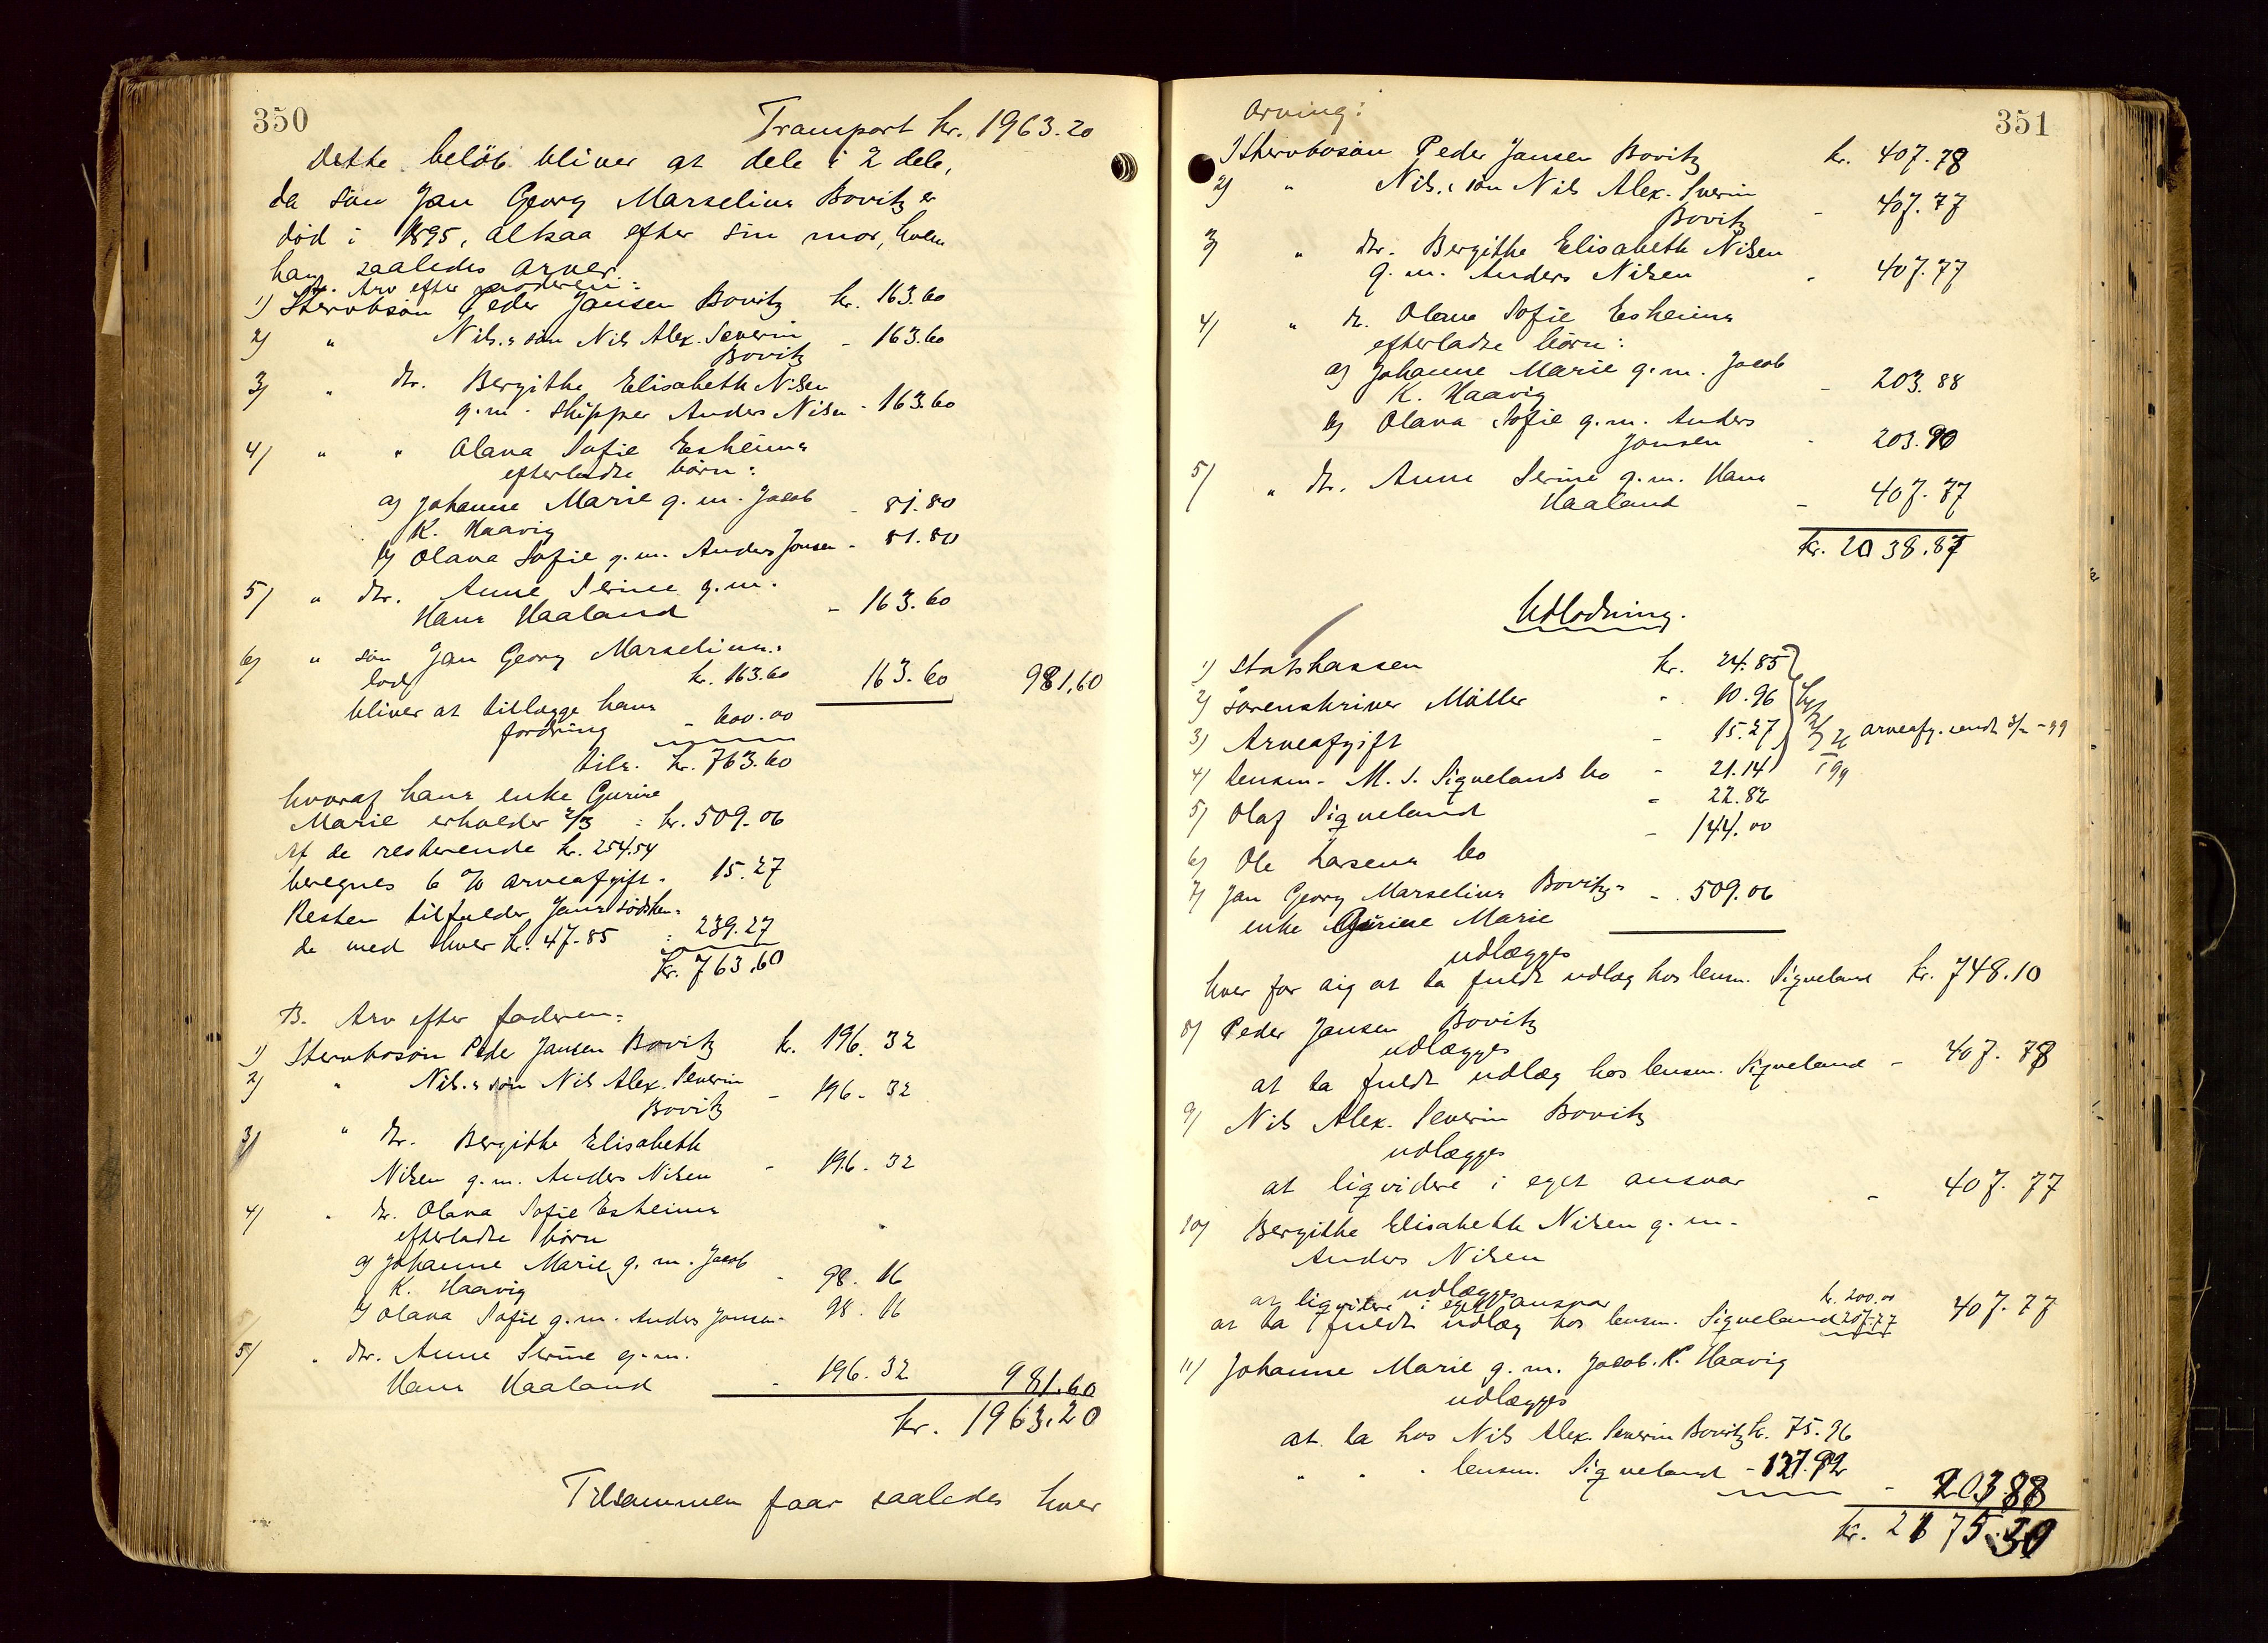 350
Transport kr. 1963.20
Dette beløb bliver at dele i 2 dele,
da søn Jan Georg Marselius Bovitz er
død i 1895, altsaa efter sin mor, hvem
han saaledes arver.
A. Arv efter moderen:
1) Stervbosøn Peder Jansen Bovitz kr. 163.60
2) " Nils.s søn Nils Alex. Severin
Bovitz - 163.60
3) " dtr. Bergithe Elisabeth Nilsen
g.m. skipper Anders Nilsen - 163.60
4) " " Olava Sofie Eskeims
efterladte børn:
a) Johanne Marie g.m. Jacob
K. Haavig - 81.80
b) Olava Sofie g.m. Anders Jonsen - 81.80
5) " dtr. Anne Serine g.m.
Hans Haaland - 163.60
6) " søn Jan Georg Marselius's
lod kr. 163.60 163.60 981.60
bliver at tillægge hans
fordring - 600.00
tils. kr. 763.60
hvoraf hans enke Gurine
Marie erholder 2/3 : kr. 509.06
Af de resterende kr. 254.54
beregnes 6 % arveafgift - 15.27
Resten tilfalder Jans sødsken-
de med hver kr. 47.85 : 239.27
kr. 763.60
B. Arv efter faderen:
1) Stervbosøn Peder Jansen Bovitz kr. 196.32
2) " Nils.s søn Nils Alex. Severin
Bovitz - 196.32
3) " dtr. Bergithe Elisabeth
Nilsen g.m. Anders Nilsen - 196.32
4) " dtr. Olava Sofie Eskeims
efterladte børn
a) Johanne Marie g.m. Jacob
K. Haavig - 98.16
b) Olava Sofie g.m. Anders Jonsen - 98.16
5) " dtr. Anne Serine g.m.
Hans Haaland - 196.32 981.60
kr. 1963.20
Tilsammen faar saaledes hver
351
arving:
1) Stervbosøn Peder Jansen Bovitz kr. 407.78
2) " Nils.s søn Nils Alex. Sverin
Bovitz - 407.77
3) " dtr. Bergithe Elisabeth Nilsen
g.m. Anders Nilsen - 407.77
4) " dtr. Olava Sofie Eskeims
efterladte børn:
a) Johanne Marie g.m. Jacob
K. Haavig - 203.88
b) Olava Sofie g.m. Anders
Jonsen - 203.90
5) " dtr. Anne Serine g.m. Hans
Haaland - 407.77
kr. 2038.87
Udlodning.
1) Statskassen kr. 24.85
2) Sorenskriver Møller - 10.96
3) Arveafgift - 15.27 arveafg. sendt
4) lensm. M. S. Siqvelands bo - 21.14
5) Olaf Siqveland - 22.82
6) Ole Larsens bo - 144.00
7) Jan Georg Marselius Bovitz's
enke Gurine Marie - 509.06
udlægges
hver for sig at ta fuldt udlæg hos lensm. Siqveland kr. 748.10
8) Peder Jansen Bovitz
udlægges
at ta fuldt udlæg hos lensm. Siqveland - 407.78
9) Nils Alex. Severin Bovitz
udlægges
at liqvidere i eget ansvar - 407.77
10) Bergithe Elisabeth Nilsen g.m.
Anders Nilsen
udlægges
at liqvidere i eget ansvar kr. 200.00
at ta fuldt udlæg hos lensm. Siqveland 207.77 407.77
11) Johanne Marie g.m. Jacob K. Haavig
udlægges
at ta hos Nils Alex. Severin Bovitz kr. 75.96
" " " lensm. Siqveland - 127.92 - 203.88
kr. 2175.30